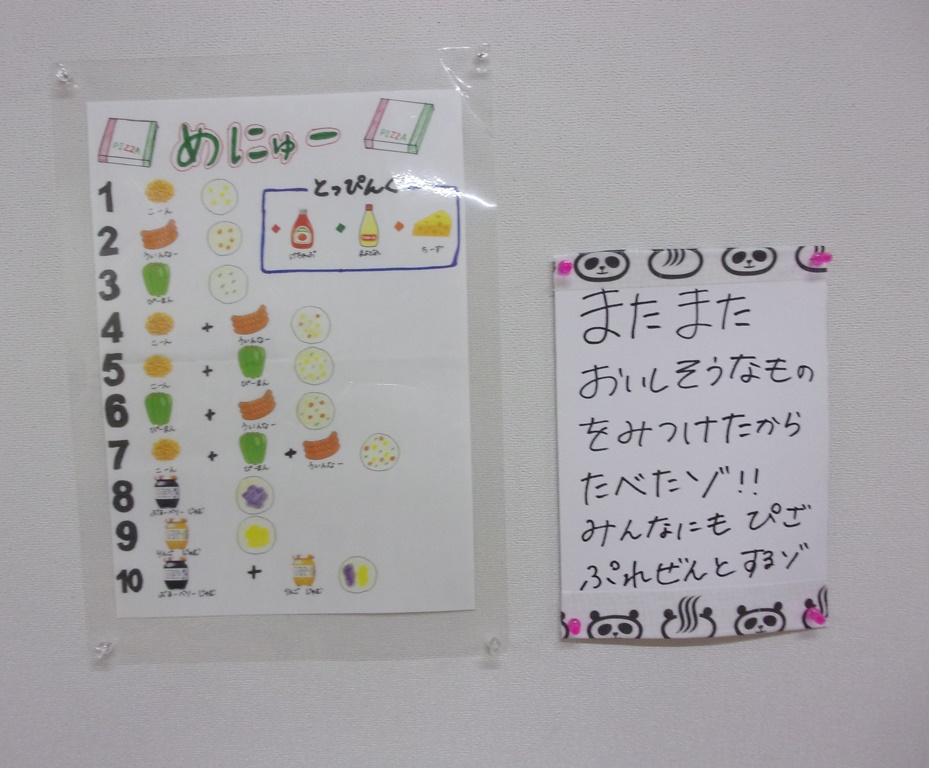 PIZZA
めにゅー
PIZZA
とっぴんぐ
けちゃっぷ
まよねーず
ちーず
1
こーん
2
ういんなー
3
ぴーまん
4
こーん
+
ういんなー
5
こーん
+
ぴーまん
6
ぴーまん
+
ういんなー
7
こーん
+
ぴーまん
+
ういんなー
8
ぶるーべりーじゃむ
9
りんごじゃむ
10
ぶるーべりーじゃむ
+
りんごじゃむ
またまた
おいしそうなもの
をみつけたから
たべたゾ!!
みんなにも ぴざ
ぷれぜんとするゾ